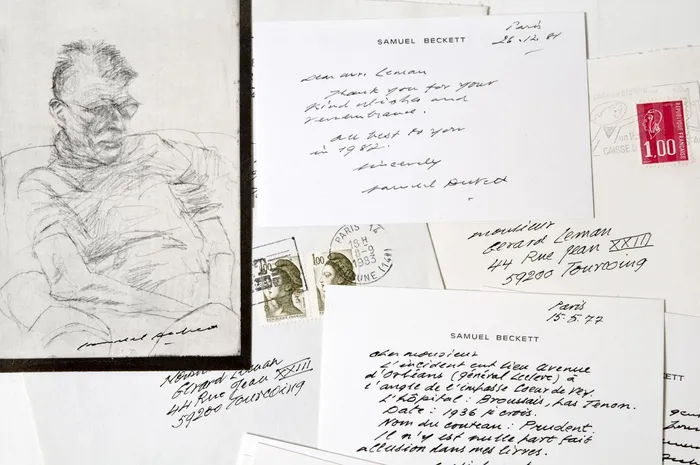 SAMUEL BECKETT
Paris
26.12.81
Dear Mr. Leman
Thank you for your
kind wishes and
remembrance.
All best to you
in 1982.
Sincerely
Samuel Beckett
1,00
CAISSE D
monsieur
Gerard Leman
44 Rue Jean XXIII
59200 Tourcoing
PARIS 14
18 H
8-9
1983
1,00
1,00
Samuel Beckett
Gerard Leman
44 Rue Jean XXIII
59200 Tourcoing
Paris
15.5.77
SAMUEL BECKETT
Cher monsieur
L'incident eut lieu Avenue
d'Orléans (général Leclerc) à
l'angle de l'impasse Coeur de Vey.
L'hôpital : Broussais, pas Tenon.
Date : 1936 je crois.
Nom du couteau : Prudent.
Il n'y est nulle part fait
allusion dans mes livres.
ETT